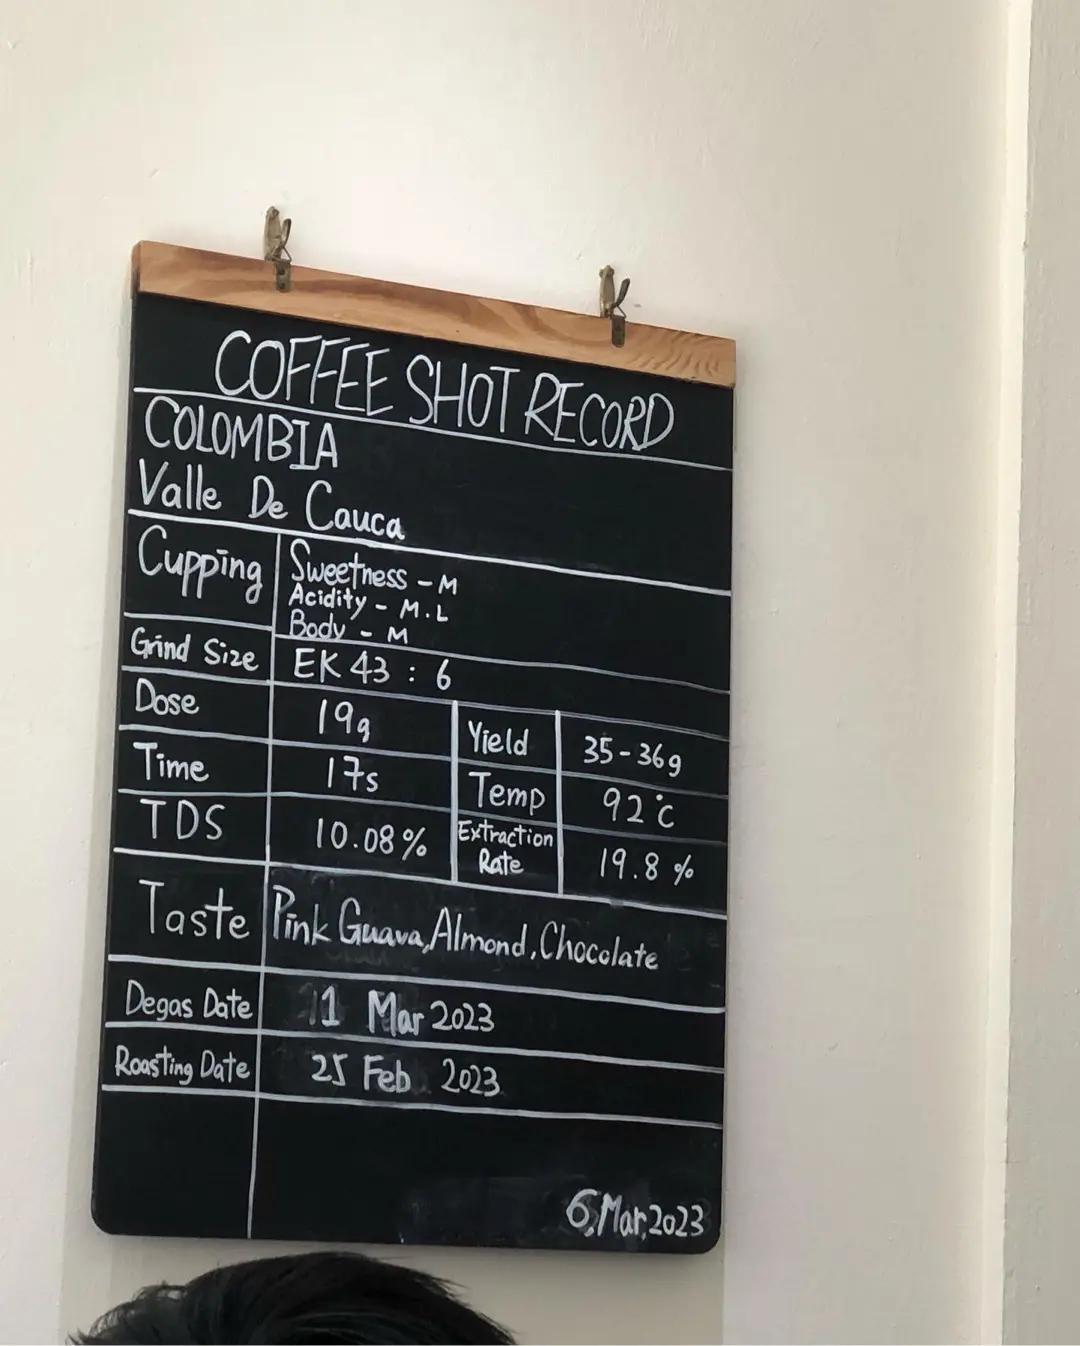 COFFEE SHOT RECORD
COLOMBIA
Valle De Cauca
Cupping
Sweetness - M
Acidity - M.L
Body - M
Grind Size EK 43 : 6
Dose 19g Yield 35-36g
Time 17s Temp 92°c
TDS 10.08% Extraction Rate 19.8 %
Taste Pink Guava, Almond, Chocolate
Degas Date 1 Mar 2023
Roasting Date 25 Feb 2023
6,Mar,2023